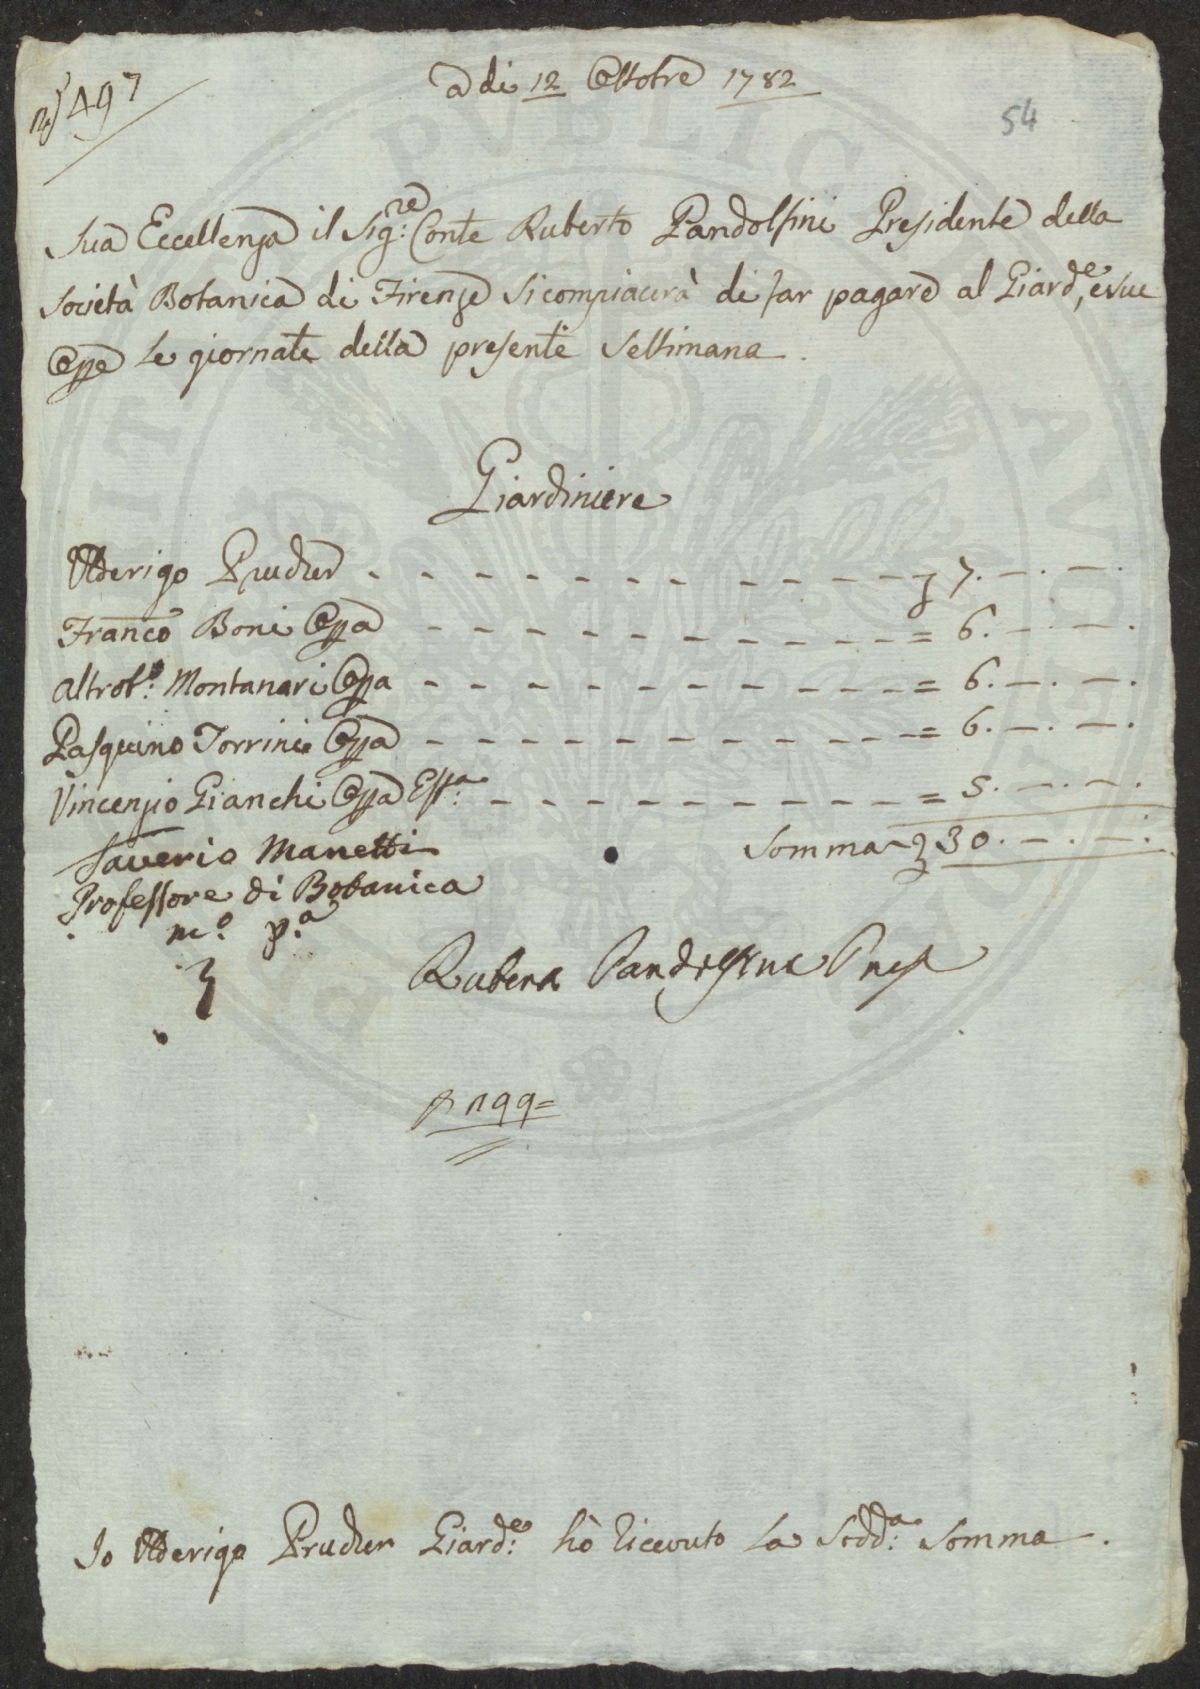 N 497
a di 12 Ottobre 1782
54
Sua Eccellenza il Sig:re Conte Ruberto Pandolfini Presidente della
Società Botanica di Firenze si compiacerà di far pagare al Giard:e, e sue
Oppe le giornate della presente Settimana.
Giardiniere
Ulderigo Prucher 7. — . — .
Franco Boni Oppa = 6. — . — .
Altrob:o Montanari Oppa = 6. — . — .
Pasquino Torrini Oppa = 6. — . — .
Vincenzio Gianchi Oppa = 5. — . — .
Somma 30. — . — .
Saverio Manetti
Professore di Botanica
m.o p.a
Pandolfini Pres
199=
Io Ulderigo Prucher Giard:e hò ricevuto la Sodd:a Somma.